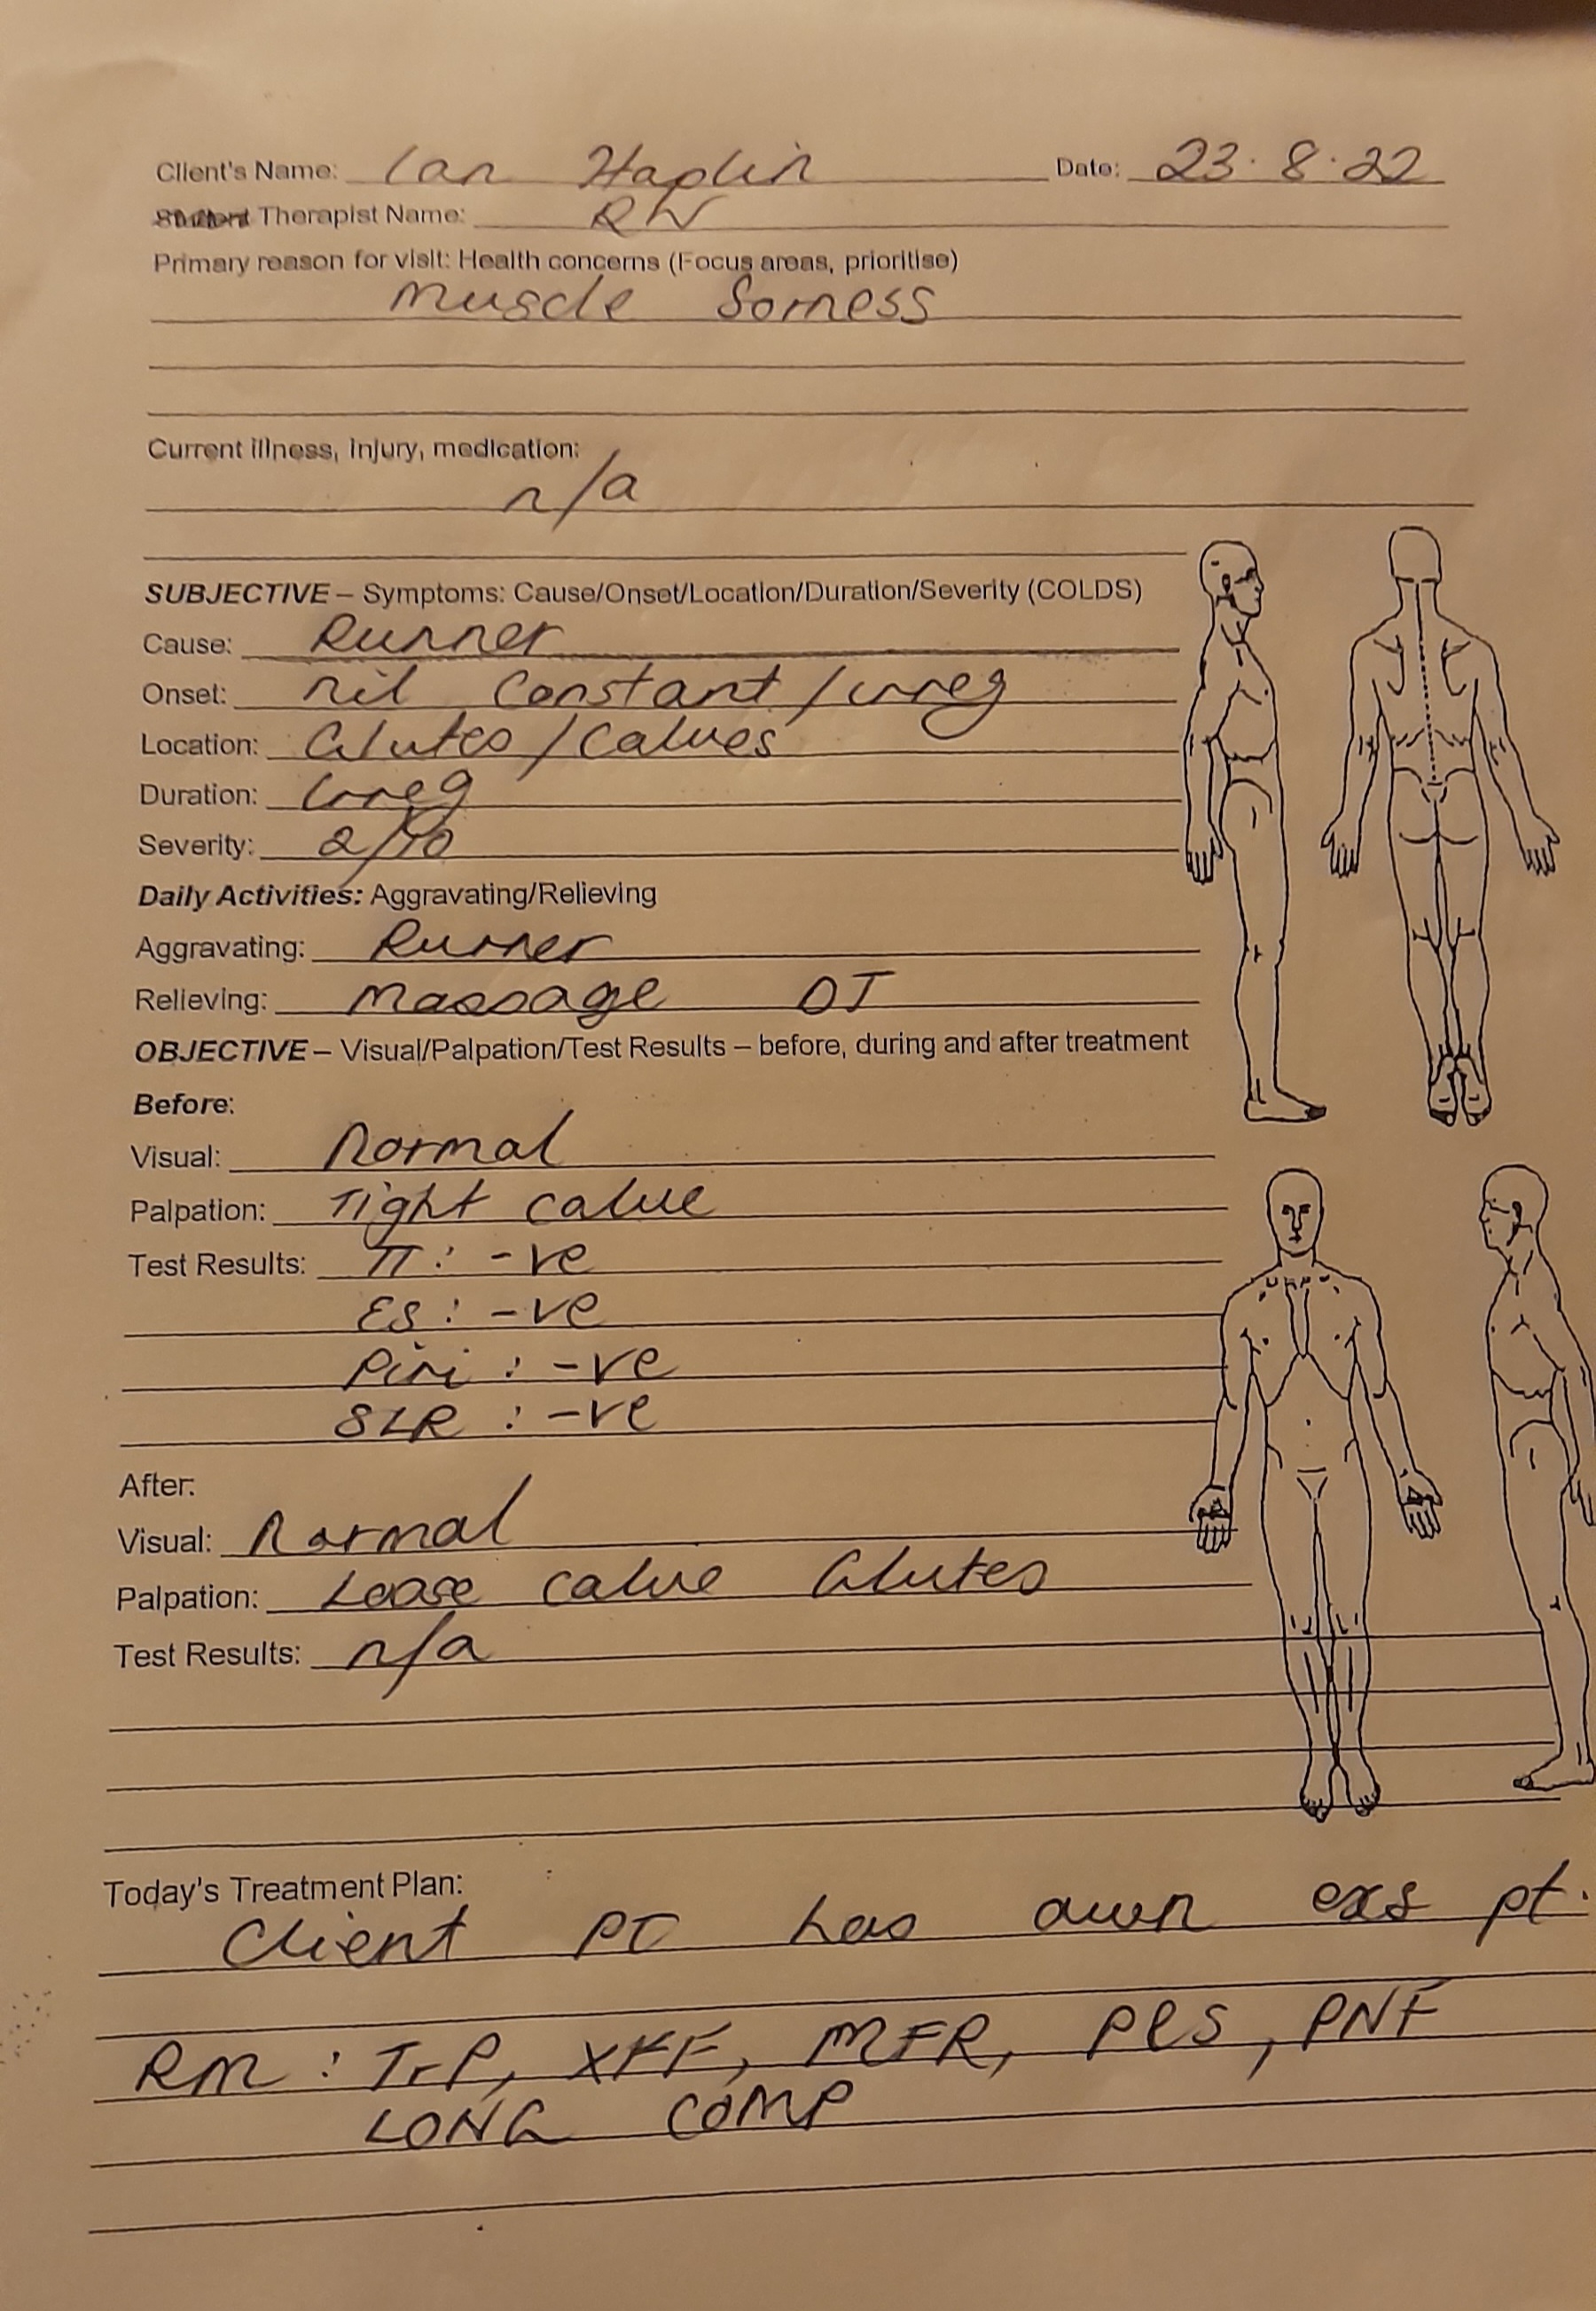 Client's Name: Ian Haplin Date: 23.8.22
Therapist Name: RW
Primary reason for visit: Health concerns (Focus areas, prioritise)
muscle Sorness
Current illness, injury, medication:
n/a
SUBJECTIVE – Symptoms: Cause/Onset/Location/Duration/Severity (COLDS)
Cause: Runner
Onset: nil Constant / irreg
Location: Glutes / Calves
Duration: Irreg
Severity: 2/10
Daily Activities: Aggravating/Relieving
Aggravating: Runner
Relieving: Massage
OBJECTIVE – Visual/Palpation/Test Results – before, during and after treatment
Before:
Visual: Normal
Palpation: Tight calve
Test Results: TT: -ve
ES: -ve
Piri: -ve
SLR: -ve
After:
Visual: Normal
Palpation: Loose calve Glutes
Test Results: n/a
Today's Treatment Plan:
Client PT has own exs pt.
RM: TrP, XFF, MFR, PNF
LONG COMP